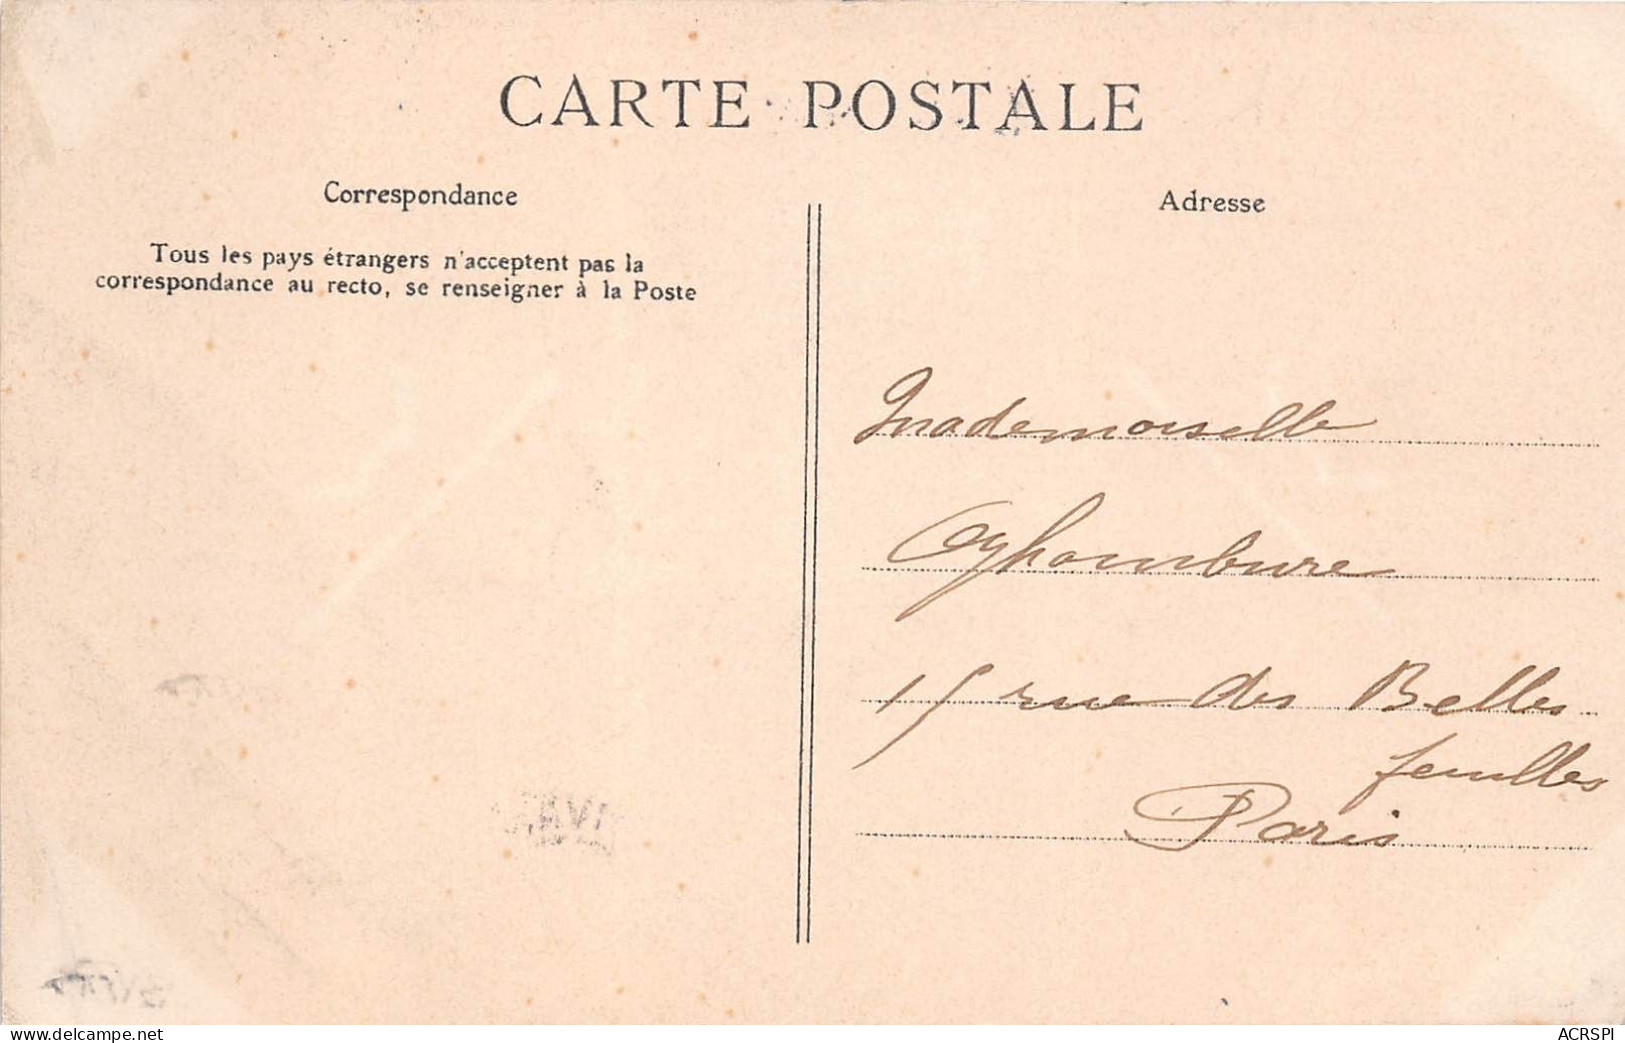 CARTE POSTALE
Correspondance
Tous les pays étrangers n'acceptent pas la
correspondance au recto, se renseigner à la Poste
Adresse
Mademoiselle
Oyhombure
15 rue des Belles
feuilles
Paris
www.delcampe.net
ACRSPI